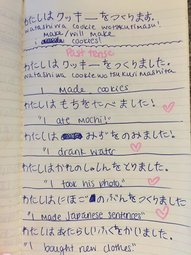 わたしはクッキーをつくります。
watashi wa cookie wo tsukurimasu
make/will make
i cookies!
Past tense
わたしはクッキーをつくりました。
watashi wa cookie wo tsukurimashita
I made cookies
わたしはもちをたべました!
"I ate mochi!"
わたしは みずをのみました!
"I drank water
わたしはかれのしゃしんをとりました。
"I took his photo."
わたしはにほごのぶんをつくりました
"I made Japanese sentences"
わたしはあたらしいふくをかいました。
"I bought new clothes."